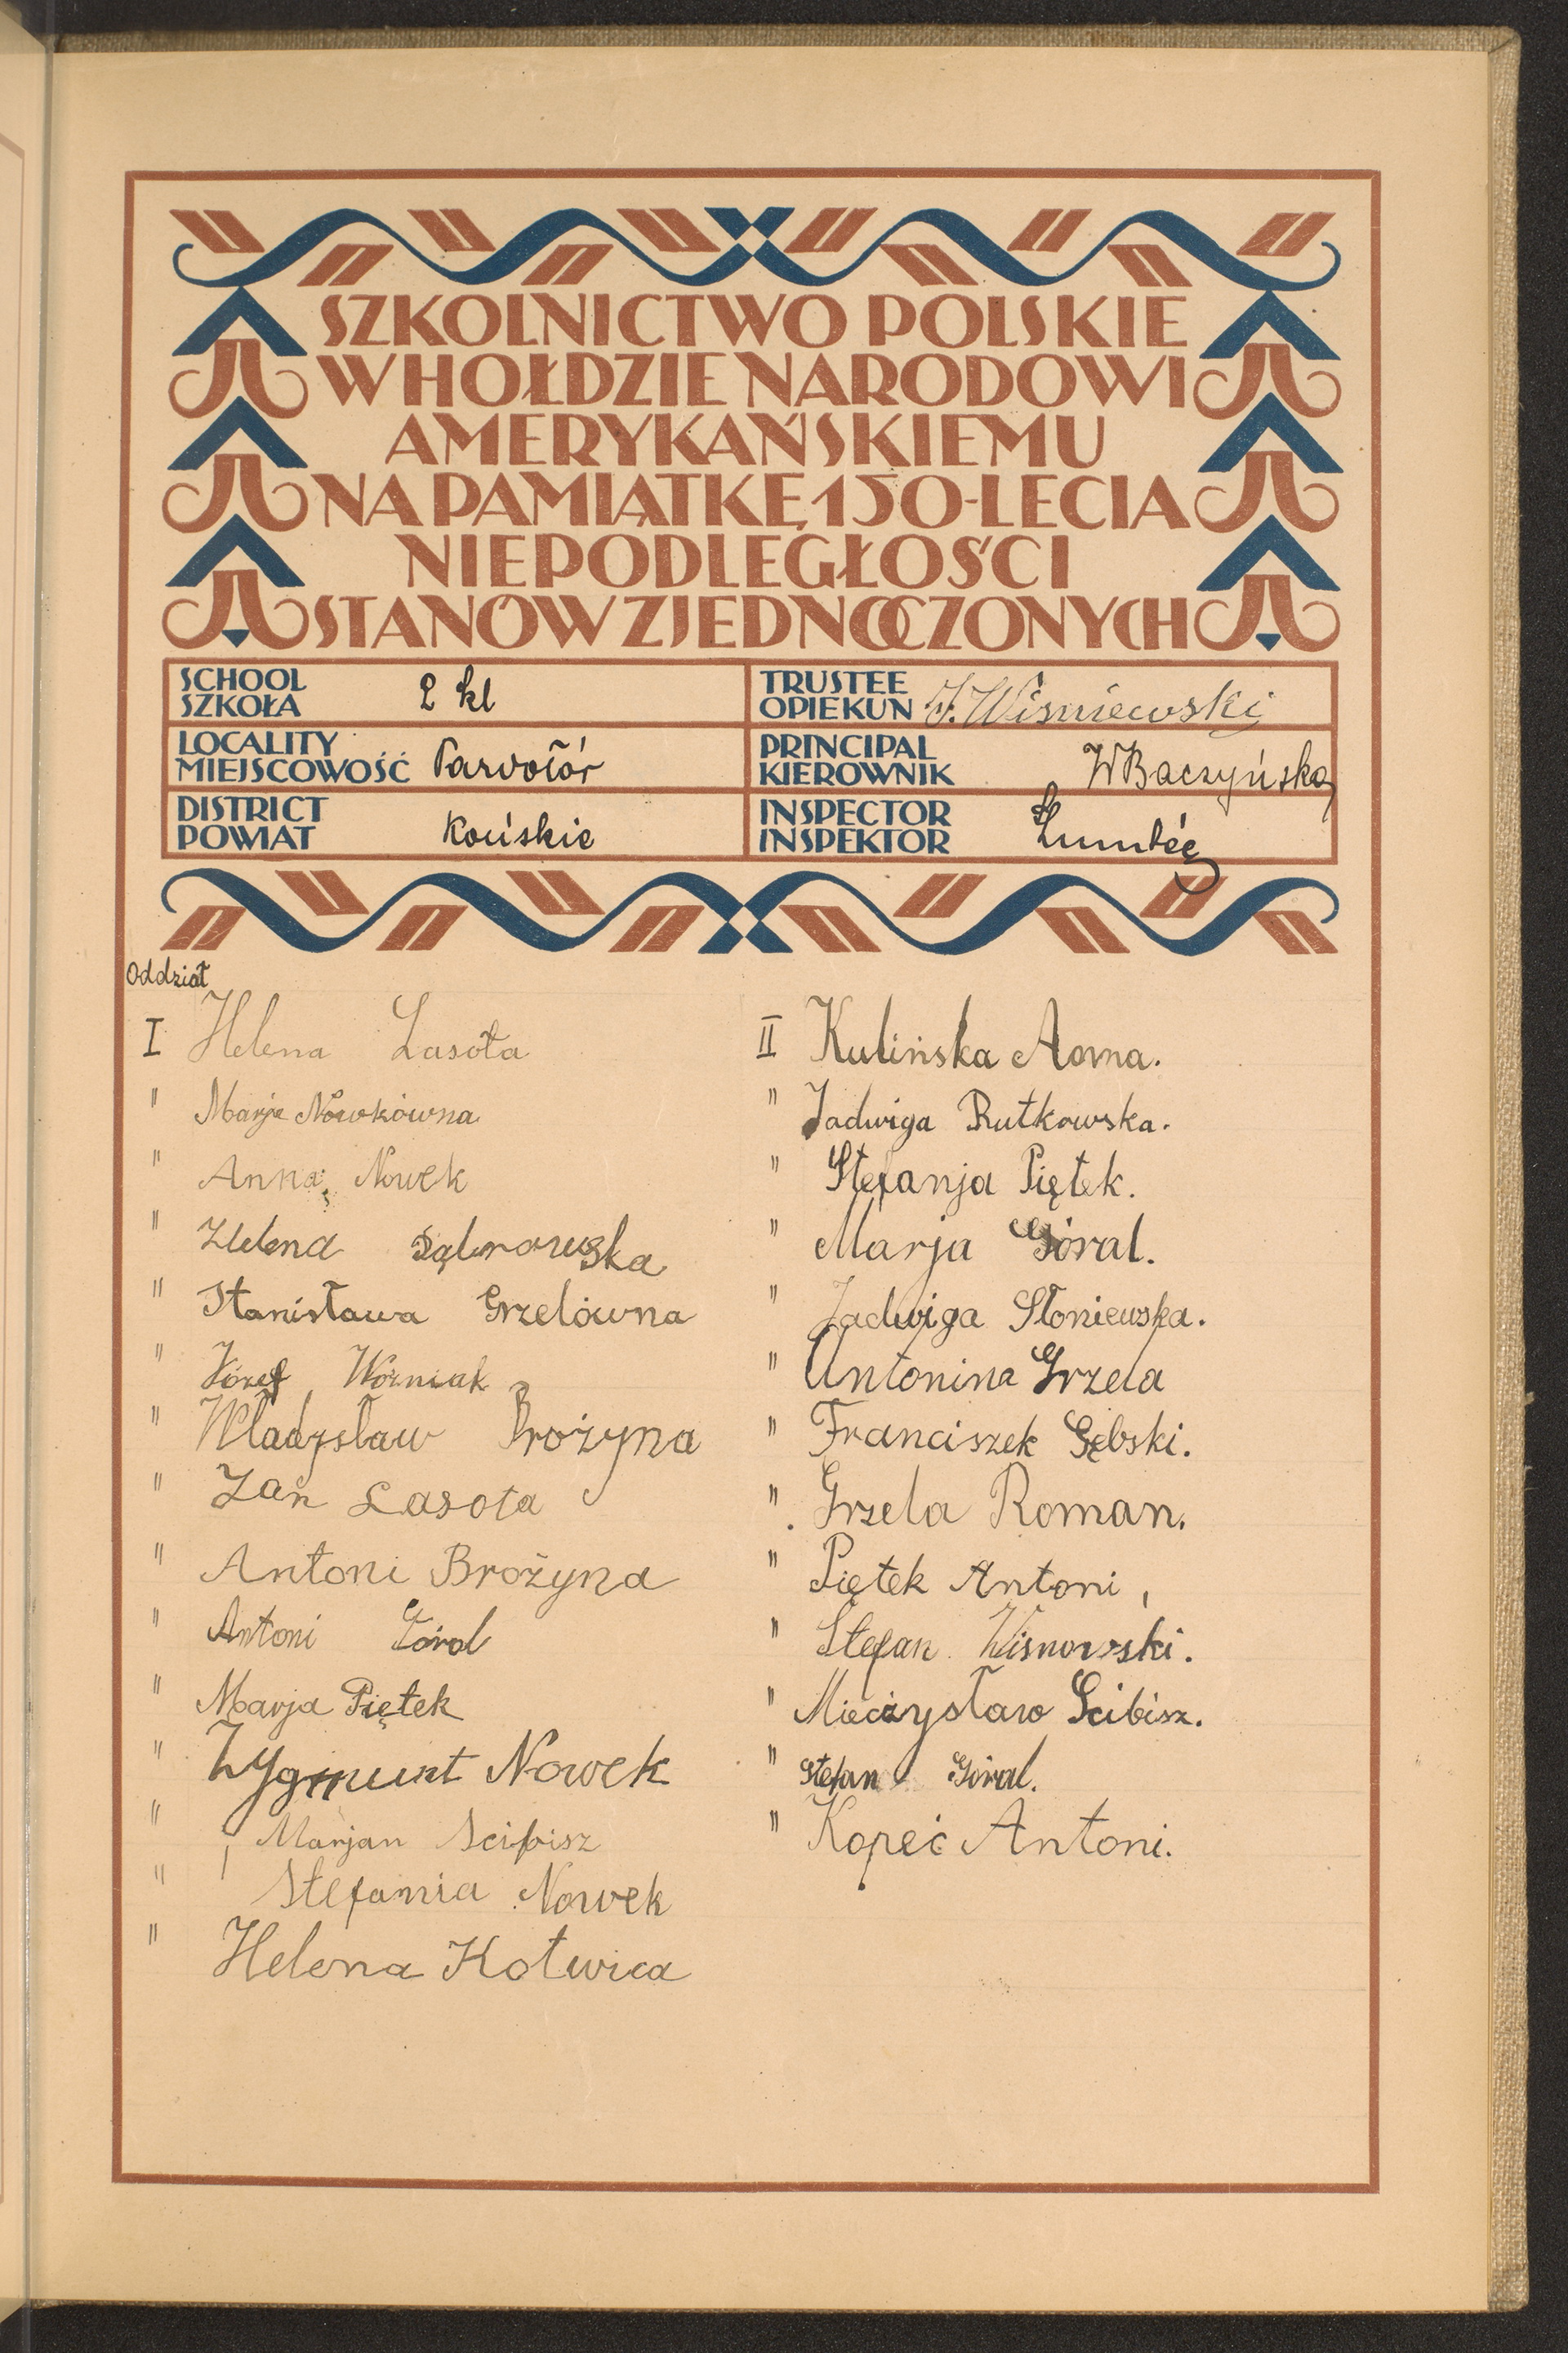 SZKOLNICTWO POLSKIE
W HOŁDZIE NARODOWI
AMERYKAŃSKIEMU
NA PAMIĄTKĘ 150-LECIA
NIEPODLEGŁOŚCI
STANÓW ZJEDNOCZONYCH
SCHOOL
SZKOŁA 2 kl
TRUSTEE
OPIEKUN J. Wiśniewski
LOCALITY
MIEJSCOWOŚĆ
PRINCIPAL
KIEROWNIK W Baczyńska
DISTRICT
POWIAT Końskie
INSPECTOR
INSPEKTOR
Oddział
I Helena Lasota
" Marja Nowkówna
" Anna Nowek
" Helena Dąbrowska
" Stanisława Grzelówna
" Józef Woźniak
" Władysław Brożyna
" Jan Lasota
" Antoni Brożyna
" Antoni Góral
" Marja Piętek
" Zygmunt Nowek
" Marjan Scibisz
" Stefania Nowek
" Helena Kotwica
II Kulińska Anna.
" Jadwiga Rutkowska.
" Stefanja Piętek.
" Marja Góral.
" Jadwiga Słoniewska.
" Antonina Grzela
" Franciszek Gębski.
" Grzela Roman.
" Piętek Antoni,
" Stefan Wisnowski.
" Mieczysław Scibisz.
" Stefan Góral.
" Kopeć Antoni.